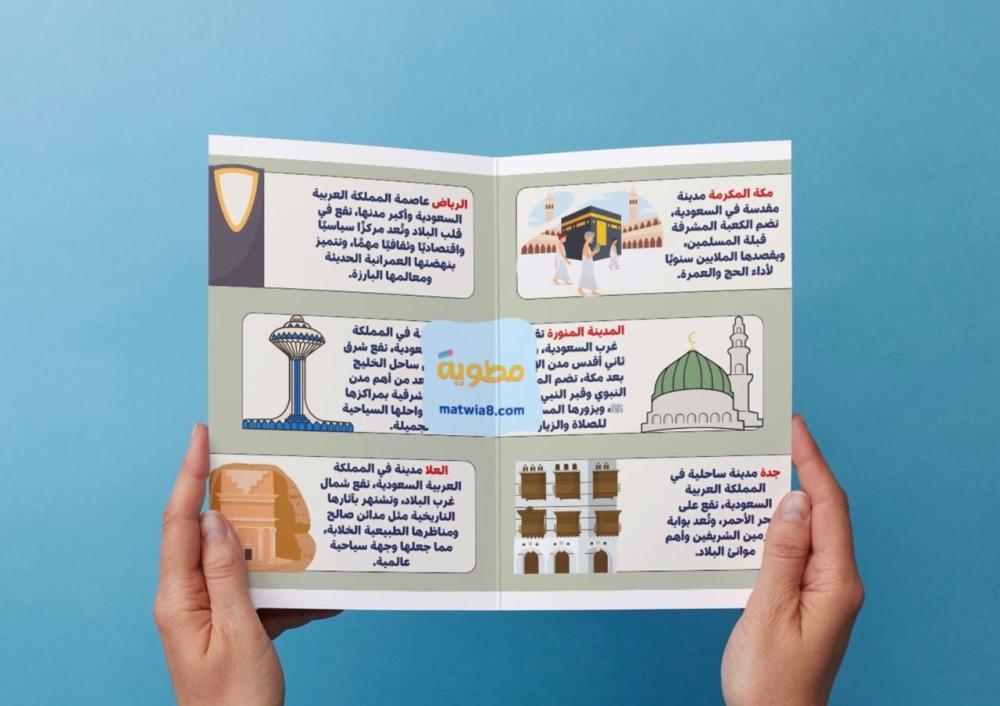 مكة المكرمة مدينة
مقدسة في السعودية،
تضم الكعبة المشرفة
قبلة المسلمين،
ويقصدها الملايين سنويًا
لأداء الحج والعمرة.
المدينة المنورة
غرب السعودية،
ثاني أقدس مدن
بعد مكة، تضم
النبوي وقبر النبي
ﷺ، ويزورها
للصلاة
جدة مدينة ساحلية في
المملكة العربية
السعودية، تقع على
الأحمر، وتُعد بوابة
الشريفين وأهم
موانئ البلاد.
الرياض عاصمة المملكة العربية
السعودية وأكبر مدنها، تقع في
قلب البلاد وتُعد مركزًا سياسيًا
واقتصاديًا وثقافيًا مهمًا، وتتميز
بنهضتها العمرانية الحديثة
ومعالمها البارزة.
في المملكة
تقع شرق
ساحل الخليج
من أهم مدن
بمراكزها
السياحية
العلا مدينة في المملكة
العربية السعودية، تقع شمال
غرب البلاد، وتشتهر بآثارها
التاريخية مثل مدائن صالح
ومناظرها الطبيعية الخلابة،
مما جعلها وجهة سياحية
عالمية.
مطوية
matwia8.com